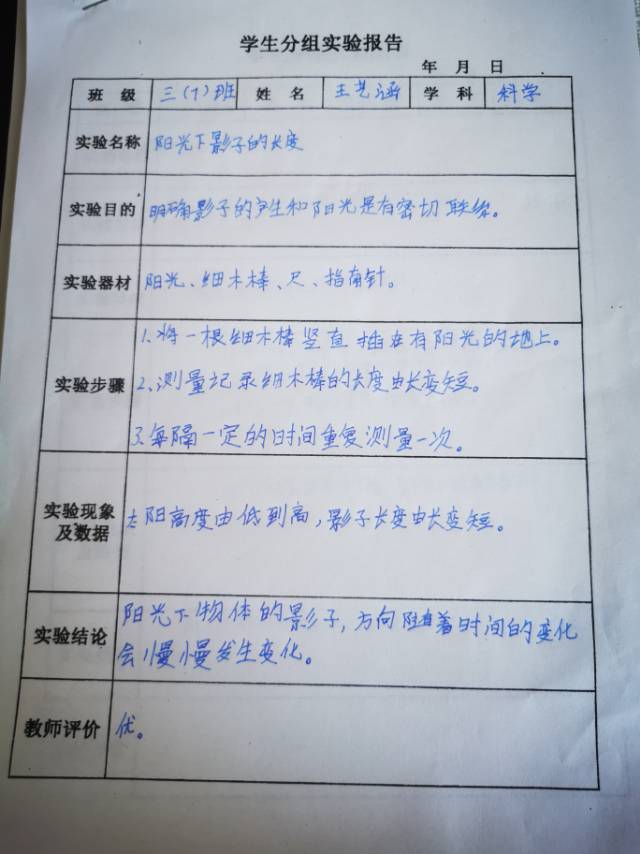 学生分组实验报告
年 月 日
班 级 三(1)班 姓 名 王艺涵 学 科 科学
实验名称 阳光下影子的长度
实验目的 明确影子的产生和阳光是有密切联系。
实验器材 阳光、细木棒、尺、指南针。
1.将一根细木棒竖直插在有阳光的地上。
实验步骤 2.测量记录细木棒的长度由长变短。
3.每隔一定的时间重复测量一次。
实验现象
及数据 太阳高度由低到高,影子长度由长变短。
阳光下物体的影子,方向随着时间的变化
实验结论 会慢慢发生变化。
教师评价 优。